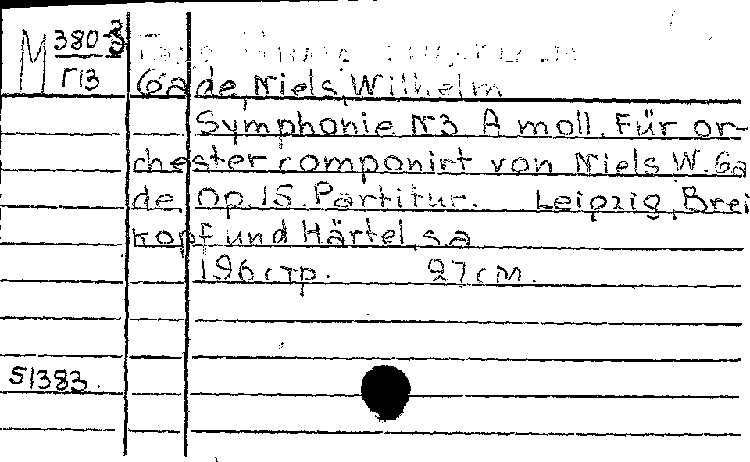 М 380-3
Г13
Gade, Niels Wilhelm
Symphonie N3 A moll. Für or-
chester componirt von Niels W. Ga
de, Op. 15 Partitur. Leipzig, Brei
kopf und Härtel, s.a
196 стр. 27 см.
51383.